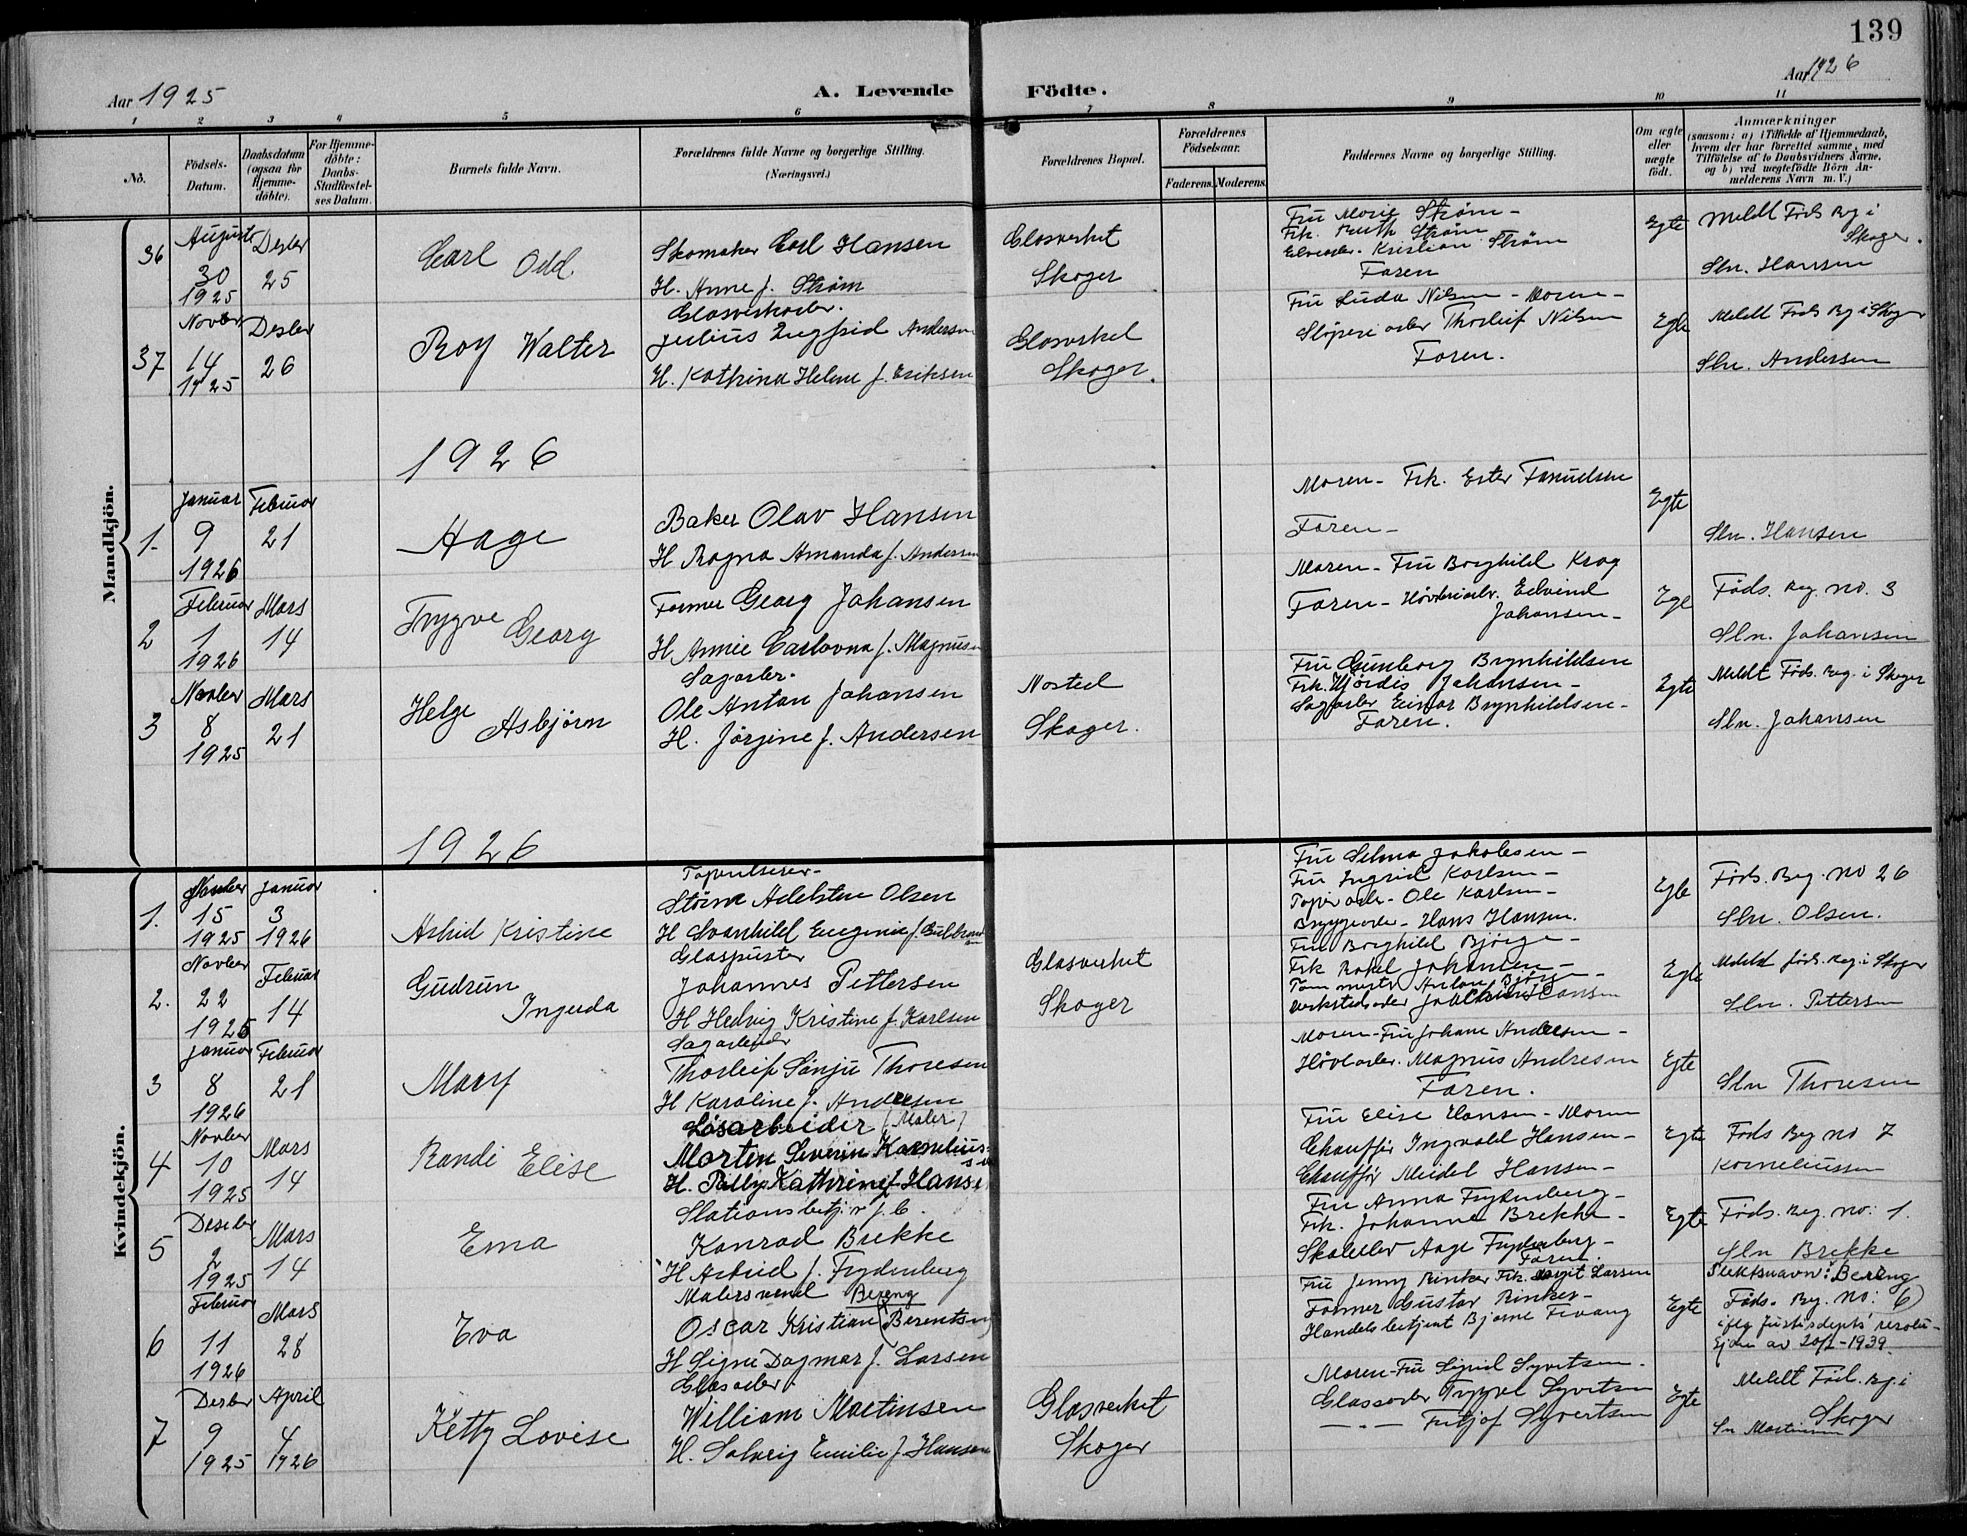 139
Aar 1925
A. Levende Födte.
Aar 1926
1 2 3 4 5 6 7 8 9 10 11
No.
Födsels-Datum.
Daabsdatum (ogsaa for Hjemme-döbte).
For Hjemme-döbte: Daabs-Stadfæstel-ses Datum.
Barnets fulde Navn.
Forældrenes fulde Navne og borgerlige Stilling. (Næringsvei.)
Forældrenes Bopæl.
Forældrenes Födselsaar.
Faderens. Moderens.
Faddernes Navne og borgerlige Stilling.
Om ægte eller uægte födt.
Anmærkninger
(saasom: a) i Tilfælde af Hjemmedaab, hvem der har forrettet samme, med Tilföielse af to Daabsvidners Navne, og b) ved uægtefödte Börn Anmelderens Navn m. V.)
Mandkjön.
36
August 30 1925
Desbr 25
Carl Odd
Skomaker Carl Hansen
H. Anne f. Strøm
Glasverket
Skoger
Fru Marie Strøm -
Frk. Ruth Strøm
Kristian Strøm
Faren
Egte
Meldt Føds Rg i Skoger.
Sln. Hansen
37
Novbr 14 1925
Desbr 26
Roy Walter
Glasverksarb.
Julius Andersen
H. Kathrine Helene f. Eriksen
Glasverket
Skoger.
Fru Luda Nilsen - Moren -
Sliperiarb Thorleif Nilsen
Faren.
Egte
Meldt Føds Rg i Skoger
Sln. Andersen
1926
1.
Januar 9 1926
Februar 21
Aage
Baker Olav Hansen
H Ragna Amanda f. Andersen
Moren - Frk. Ester Fanuelsen
Faren -
Egte
Sln. Hansen
2
Februar 1 1926
Mars 14
Trygve Georg
Former Georg Johansen
H Annie Carlovna f. Magnusen
Moren - Fru Borghild Krog
Faren - Høvleriarb. Edvind Johansen -
Egte
Føds. Reg. no. 3
Sln. Johansen
3
Novbr 8 1925
Mars 21
Helge Asbjørn
Sagarb.
Ole Anton Johansen
H. Jørgine f. Andersen
Nøsted
Skoger.
Fru Gunborg Brynhildsen
Frk. Hjørdis Johansen -
Sagarb Einar Brynhildsen -
Faren.
Egte
Meldt Føds. Reg. i Skoger
Sln. Johansen
Kvindekjön.
1926
1.
Novbr 15 1925
Januar 3 1926
Astrid Kristine
Adelsten Olsen
H Svanhild Eugenie f. Gulbrandsen
Fru Selma Jakobsen -
Fru Ingrid Karlsen -
Papirarb - Ole Karlsen -
Bryggearb - Hans Hansen.
Egte
Føds. Reg. no 26
Sln. Olsen.
2.
Novbr 22 1925
Februar 14
Gudrun Ingerda
Glaspuster
Johannes Pettersen
H Hedvig Kristine f. Karlsen
Glasverket
Skoger
Fru Borghild Bjørge -
Frk Rakel Johansen -
Anton Bjørge -
Verkstedarb Hansen
Egte
Meldt føds. Reg. i Skoger
Sln. Pettersen
3
Januar 8 1926
Februar 21
Mary
Sagarbeider
Thorleif Sønju Thoresen
H Karoline f. Andresen
Moren - Fru Johane Andresen -
Høvlarb. Magnus Andresen
Faren.
Egte
Sln Thoresen
4
Novbr 10 1925
Mars 14
Randi Elise
Løsarbeider (Maler)
Morten Severin Kornelius-
sen
H. Pally Kathrine f. Hansen
Fru Elise Hansen - Moren
Chauffør Ingvald Hansen -
Chauffør Meidel Hansen -
Egte
Føds Reg no 7
Korneliussen
5
Desebr 2 1925
Mars 14
Erna
Stationsbetj. v/ J. B.
Konrad Brekke
H Astrid f. Frydenberg
Fru Anna Frydenberg -
Frk. Johanne Brekke -
Skoelev Aage Frydenberg -
Faren.
Egte
Føds. Reg. no: 1.
Sln Brekke
6
Februar 11 1926
Mars 28
Eva
Malersvend Bereng
Oscar Kristian (Berentsen)
H Signe Dagmar f. Larsen
Fru Jenny Rinker Frk. Margit Larsen
Former Gustav Rinker -
Handelsbetjent Bjarne Tevang
Egte
Slektsnavn: Bereng
Føds. Reg. no: 6)
iflg Justisdepts resolu-
sjon av 20/1 - 1939.
7
Desbr 9 1925
April 4 1926
Ketty Lovise
Glasarb.
William Martinsen
H. Solveig Emilie f. Hansen
Glasverket
Skoger
Moren - Fru Sigrid Syvertsen.
Glassarb Trygve Syvertsen
— - — Fritjof Syvertsen
Egte
Meldt Fød. Rg. i
Skoger
Sn Martinsen